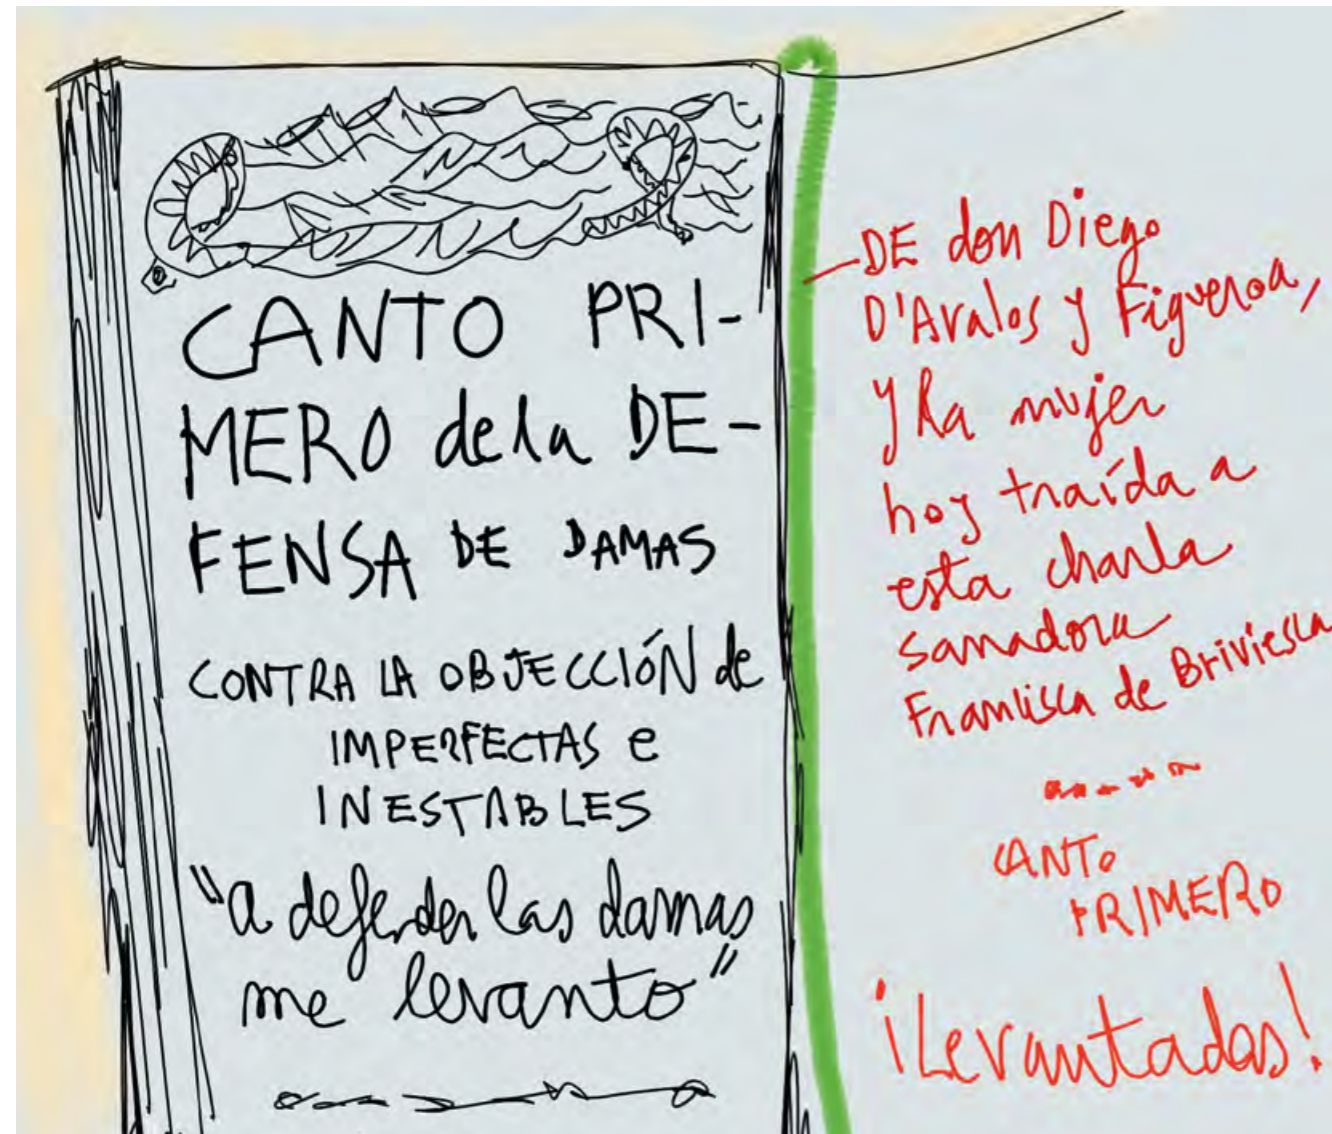 CANTO PRI-
MERO de la DE-
FENSA DE DAMAS
CONTRA LA OBJECCIÓN de
IMPERFECTAS e
INESTABLES
"a defender las damas
me levanto"
DE don Diego
D'Avalos y Figueroa,
y la mujer
hoy traída a
esta charla
sanadora
Francisca de Briviesca
CANTO
PRIMERO
¡Levantadas!